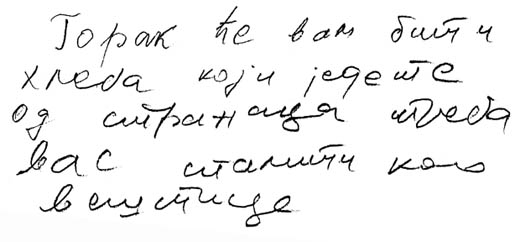 Горак ће вам бити
хлеба који једете
од странаца треба
вас спалити као
вештице